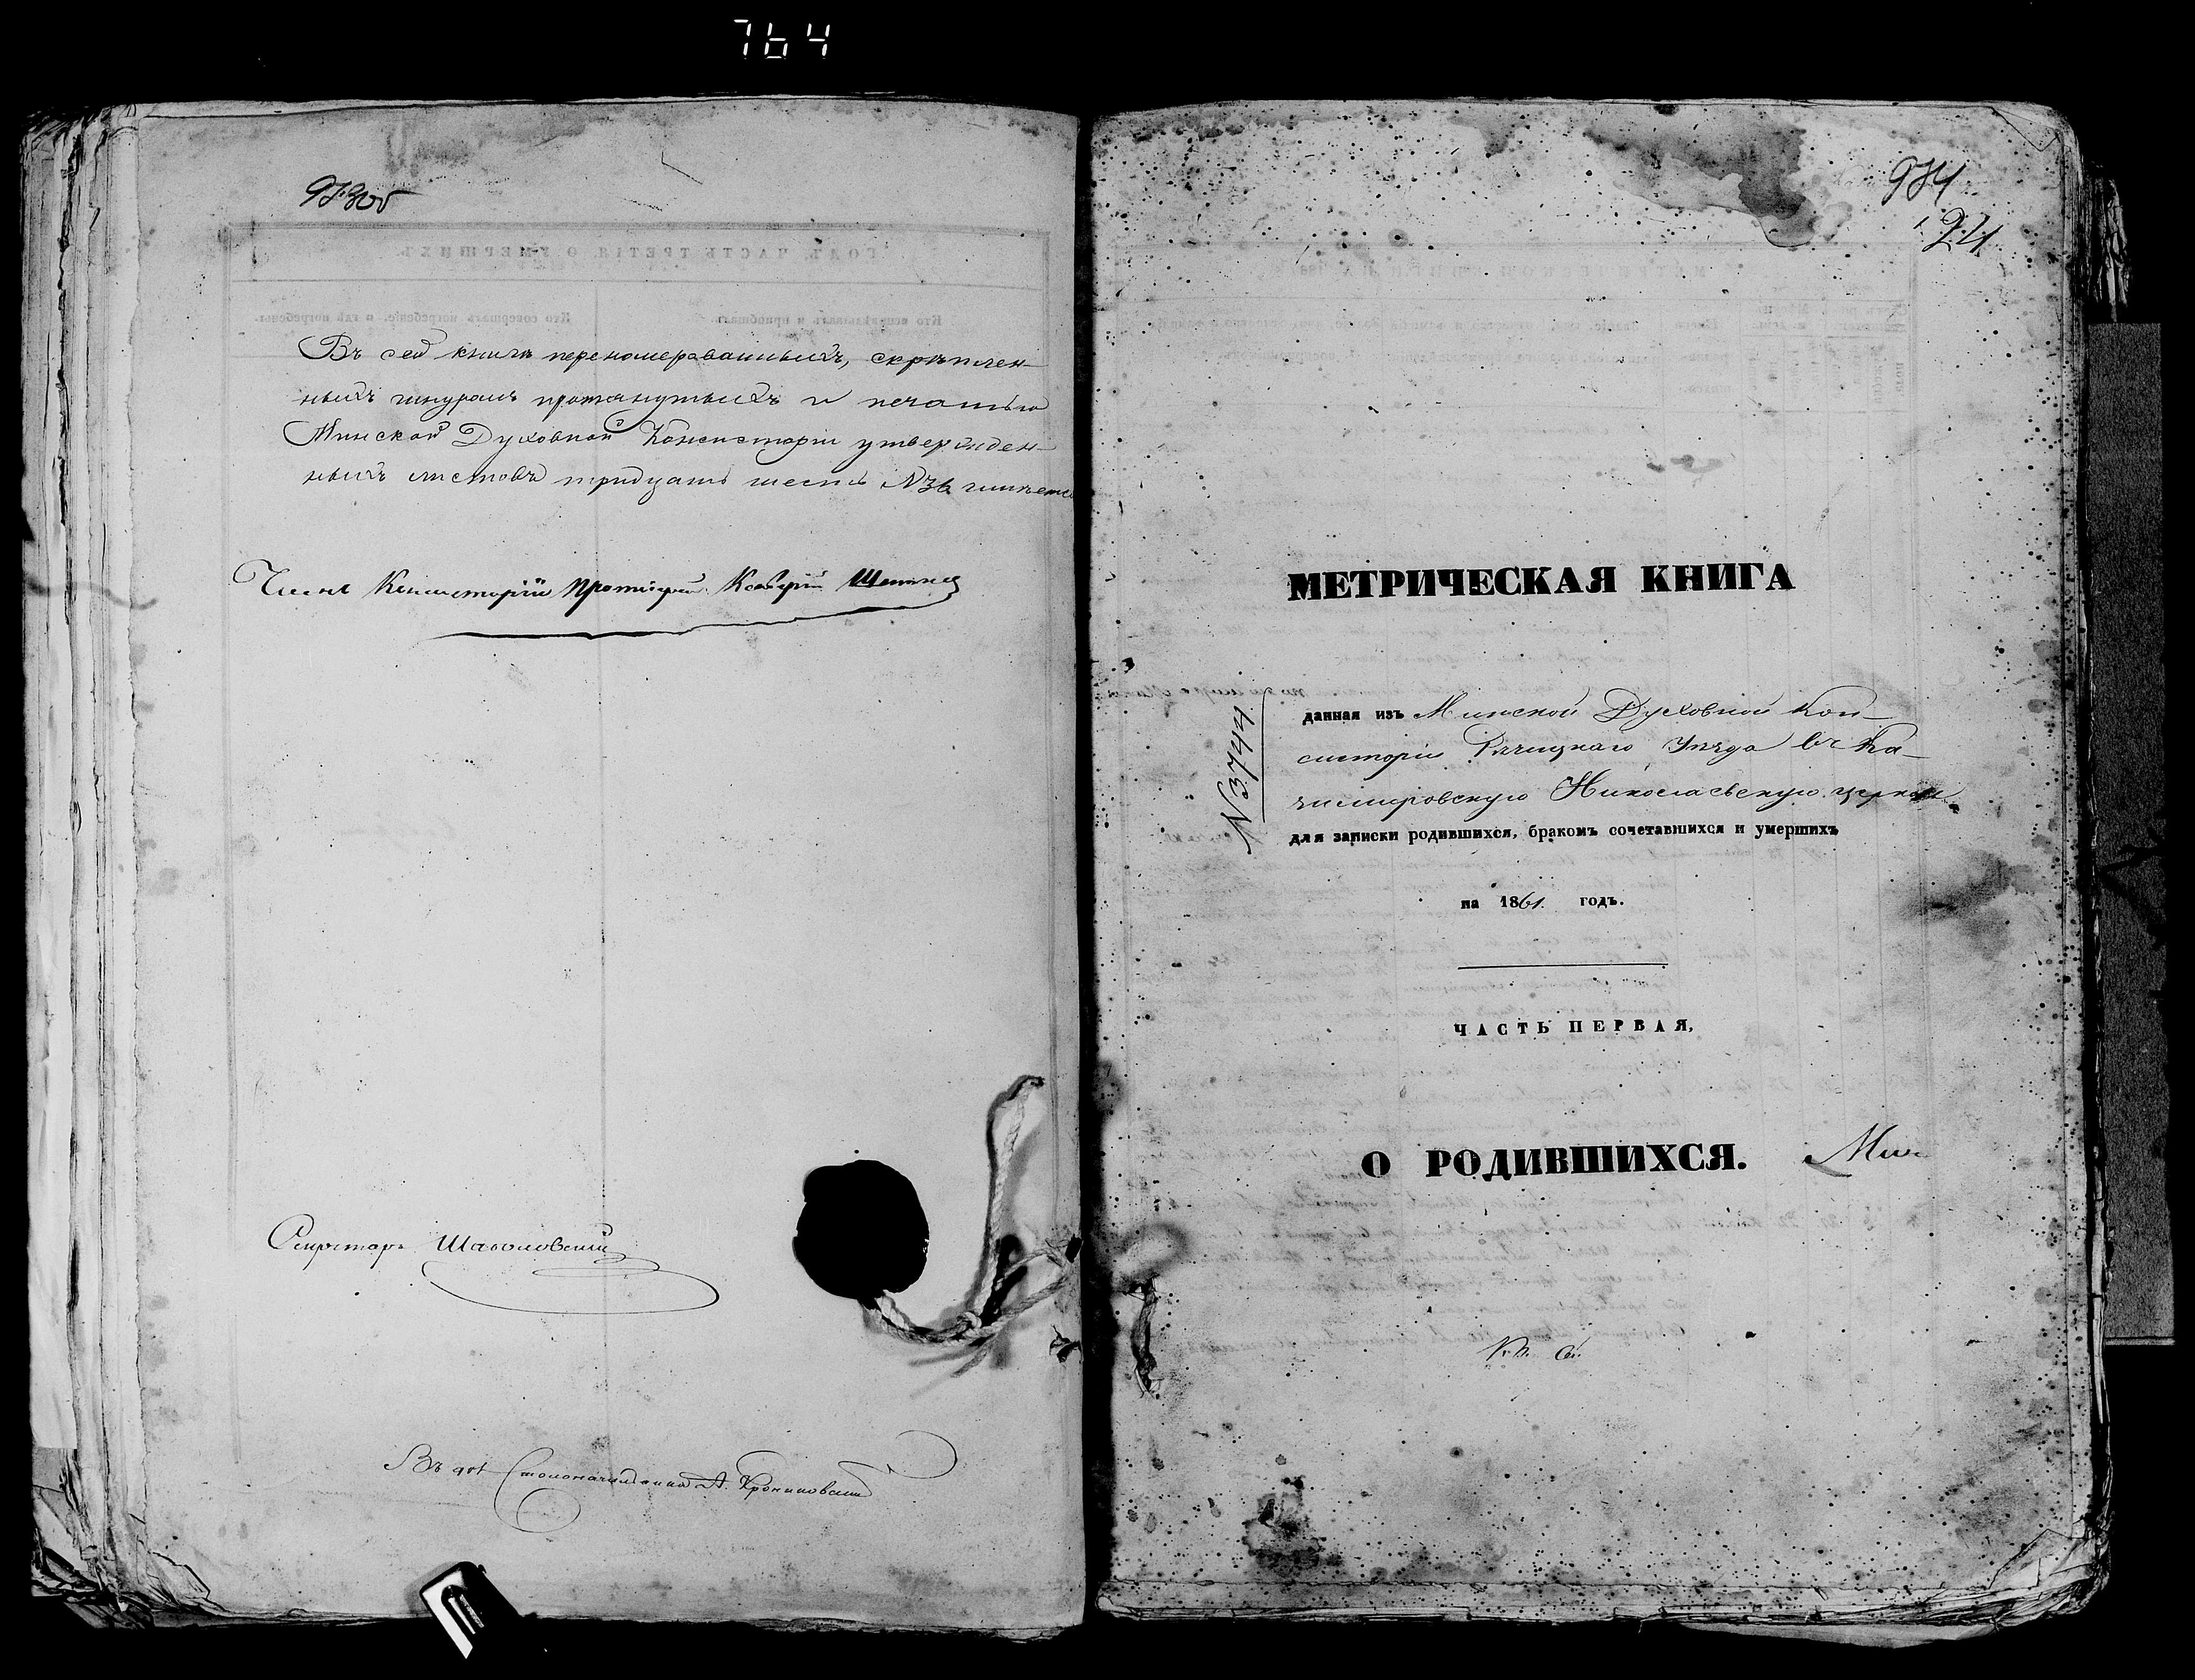 764
973об
Въ сей книги переномерованныхъ, скрѣплен-
ныхъ шнуромъ протянутыхъ и печатью
Минской Духовной Консисторіи утвержден-
ныхъ листовъ тридцать шесть №36 
Членъ Консисторіи Протоіерей
Секретарь
Въ дол Столоначальника А.
974
24
МЕТРИЧЕСКАЯ КНИГА
№3744
данная изъ Минской Духовной Кон-
систоріи Рѣчицкаго Уѣзда въ Ка-
зимировскую Николаевскую церковь
для записки родившихся, бракомъ сочетавшихся и умершихъ
на 1861. годъ.
ЧАСТЬ ПЕРВАЯ,
О РОДИВШИХСЯ.